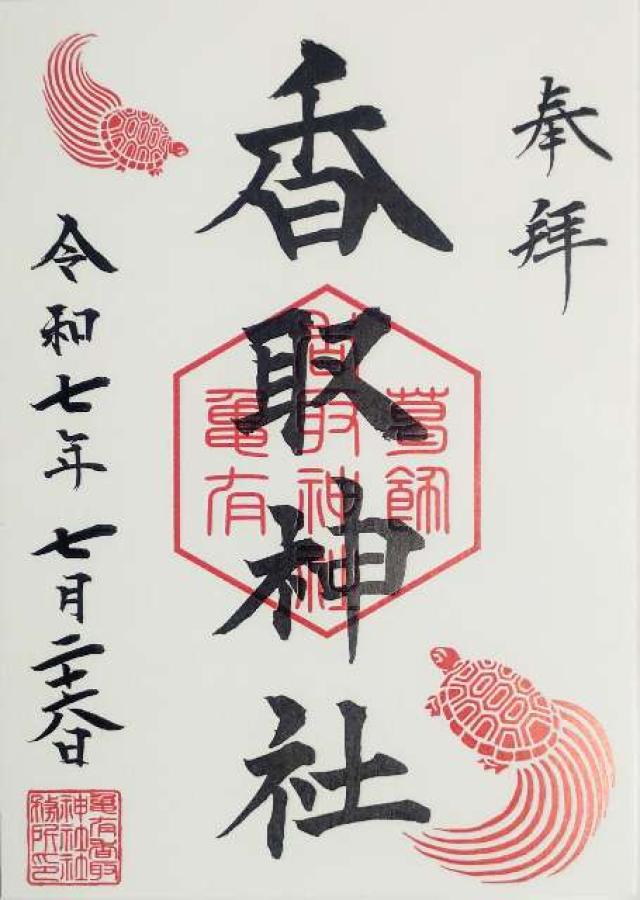 奉拝
香取神社
葛飾
香取神社
亀有
令和七年七月二十六日
亀有香取
神社社
務所印